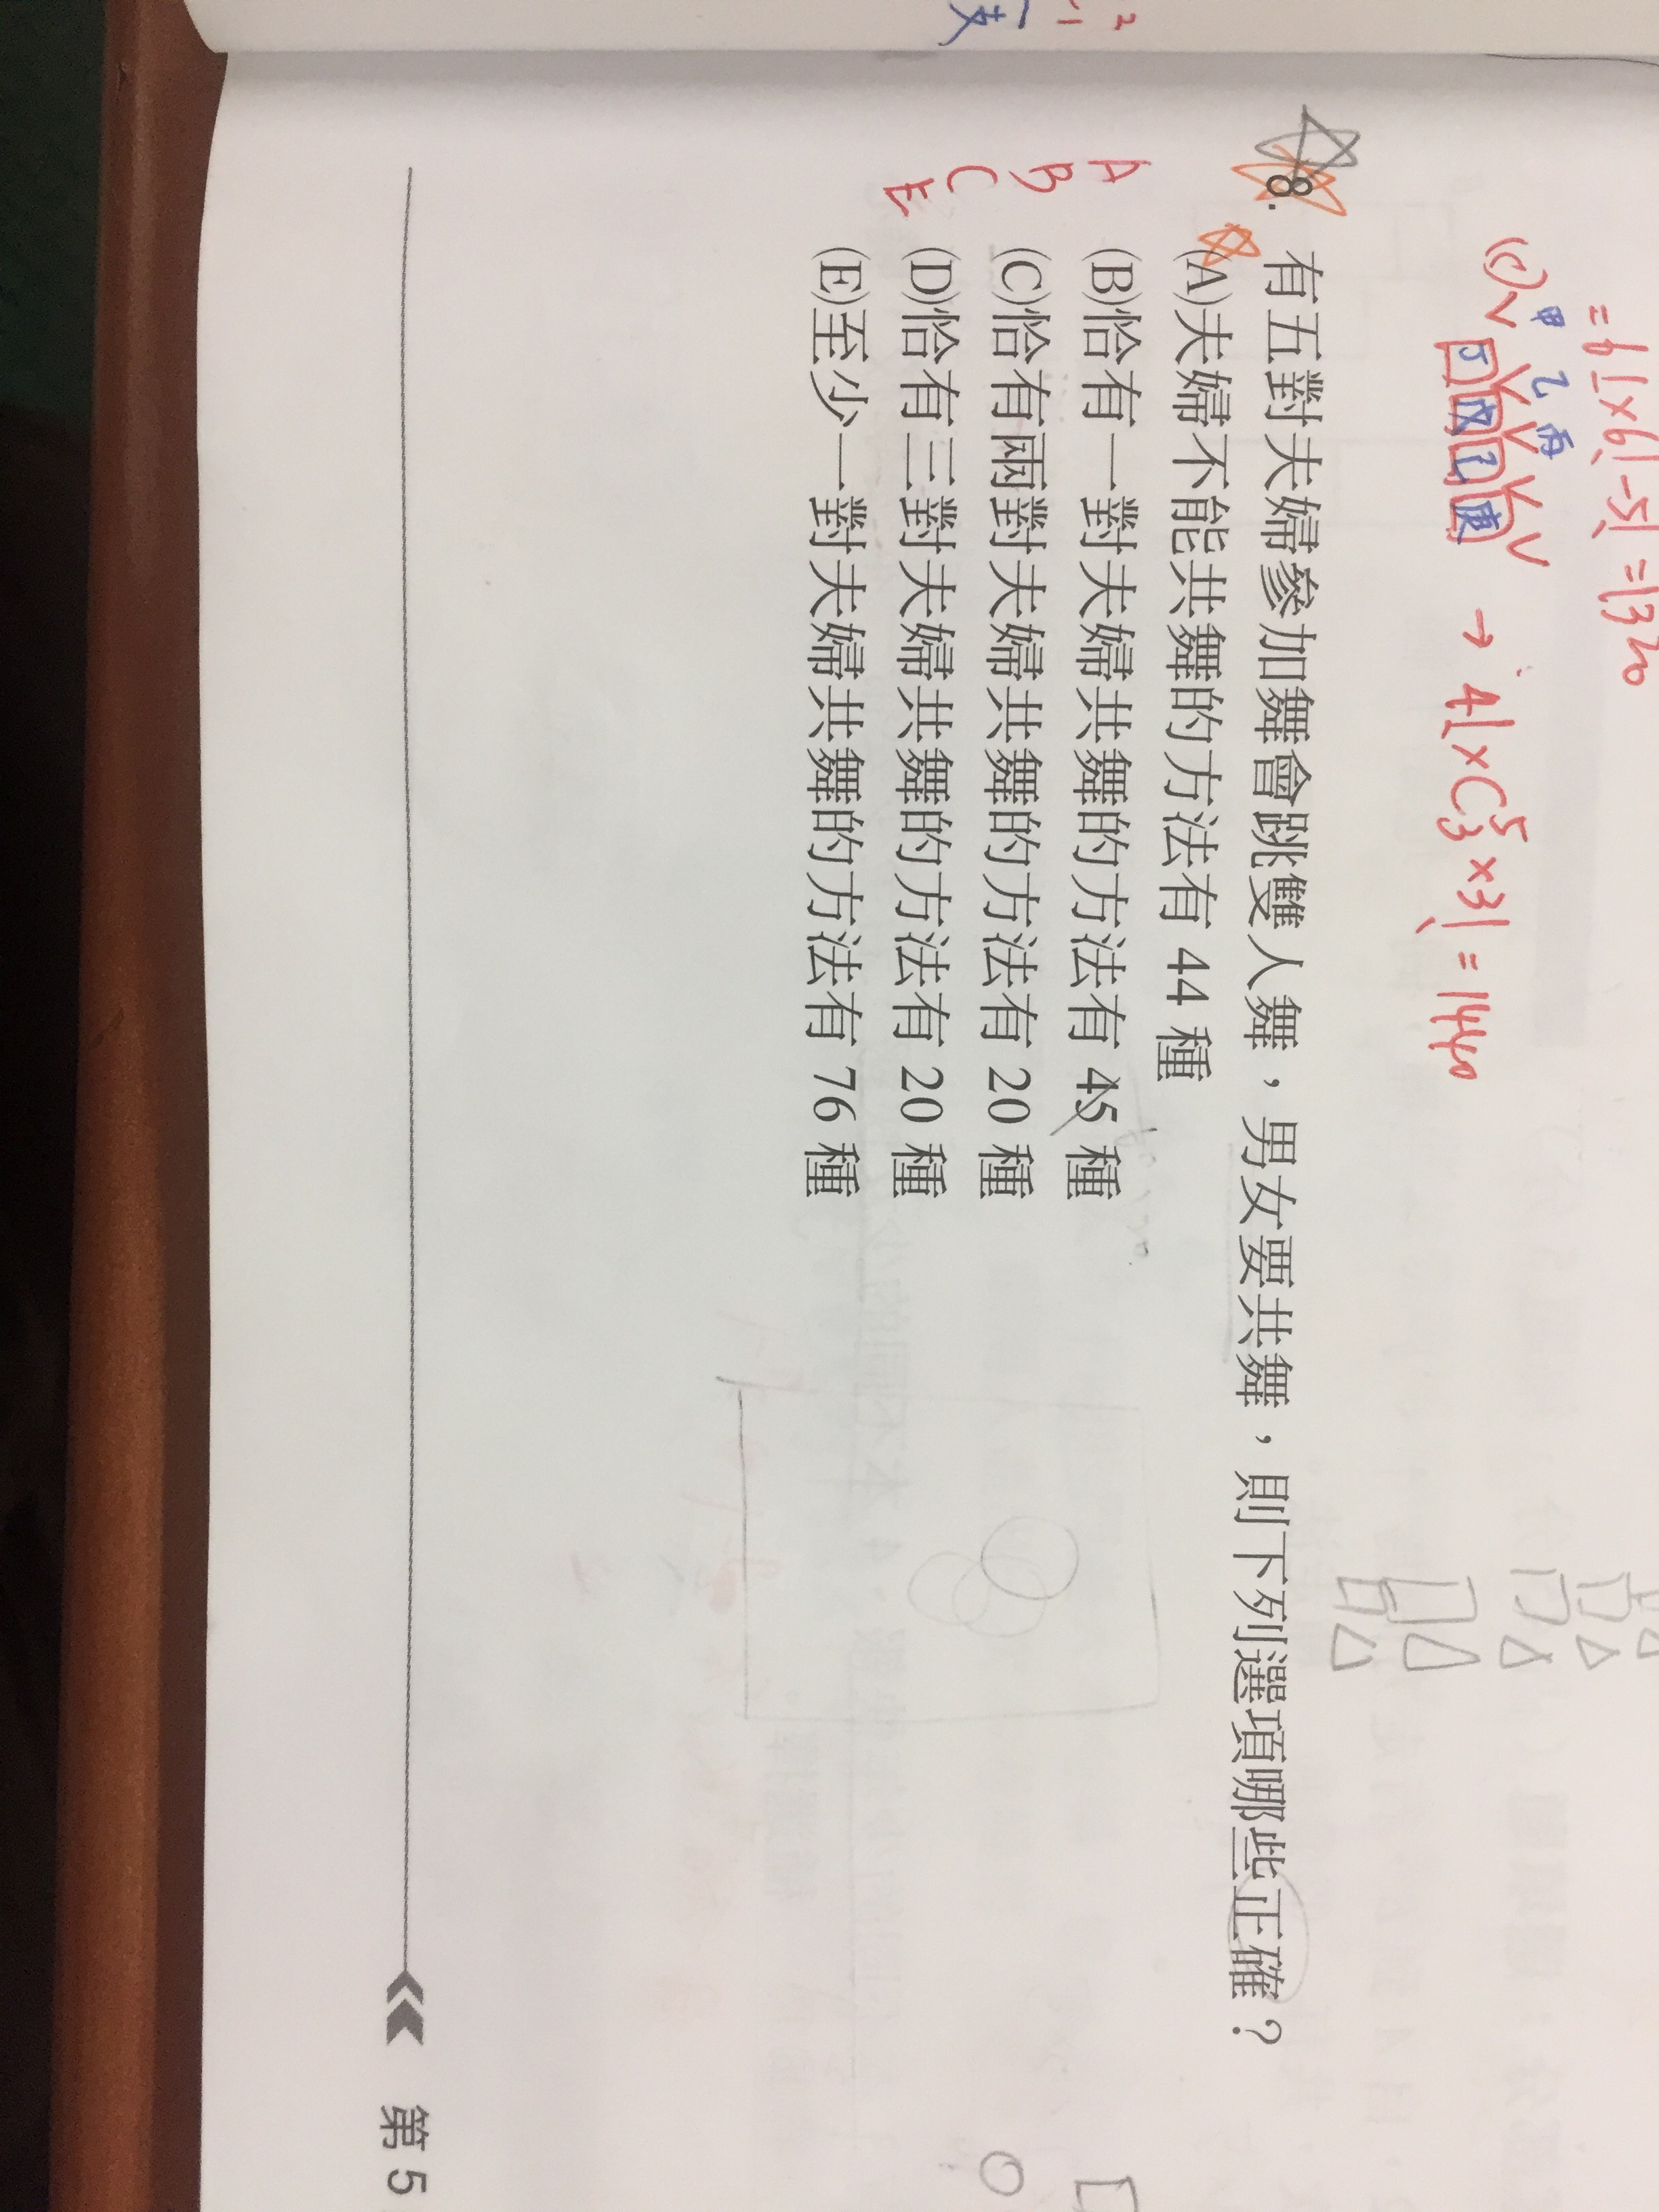 = 6! × 6! - 5! = 1320
甲 乙 丙
(C) V V V V V
丁 戊 己 庚 → 4! × C⁵₃ × 3! = 1440
8. 有五對夫婦參加舞會跳雙人舞，男女要共舞，則下列選項哪些正確？
(A)夫婦不能共舞的方法有 44 種
(B)恰有一對夫婦共舞的方法有 45 種
(C)恰有兩對夫婦共舞的方法有 20 種
(D)恰有三對夫婦共舞的方法有 20 種
(E)至少一對夫婦共舞的方法有 76 種
A
B
C
E
第 5